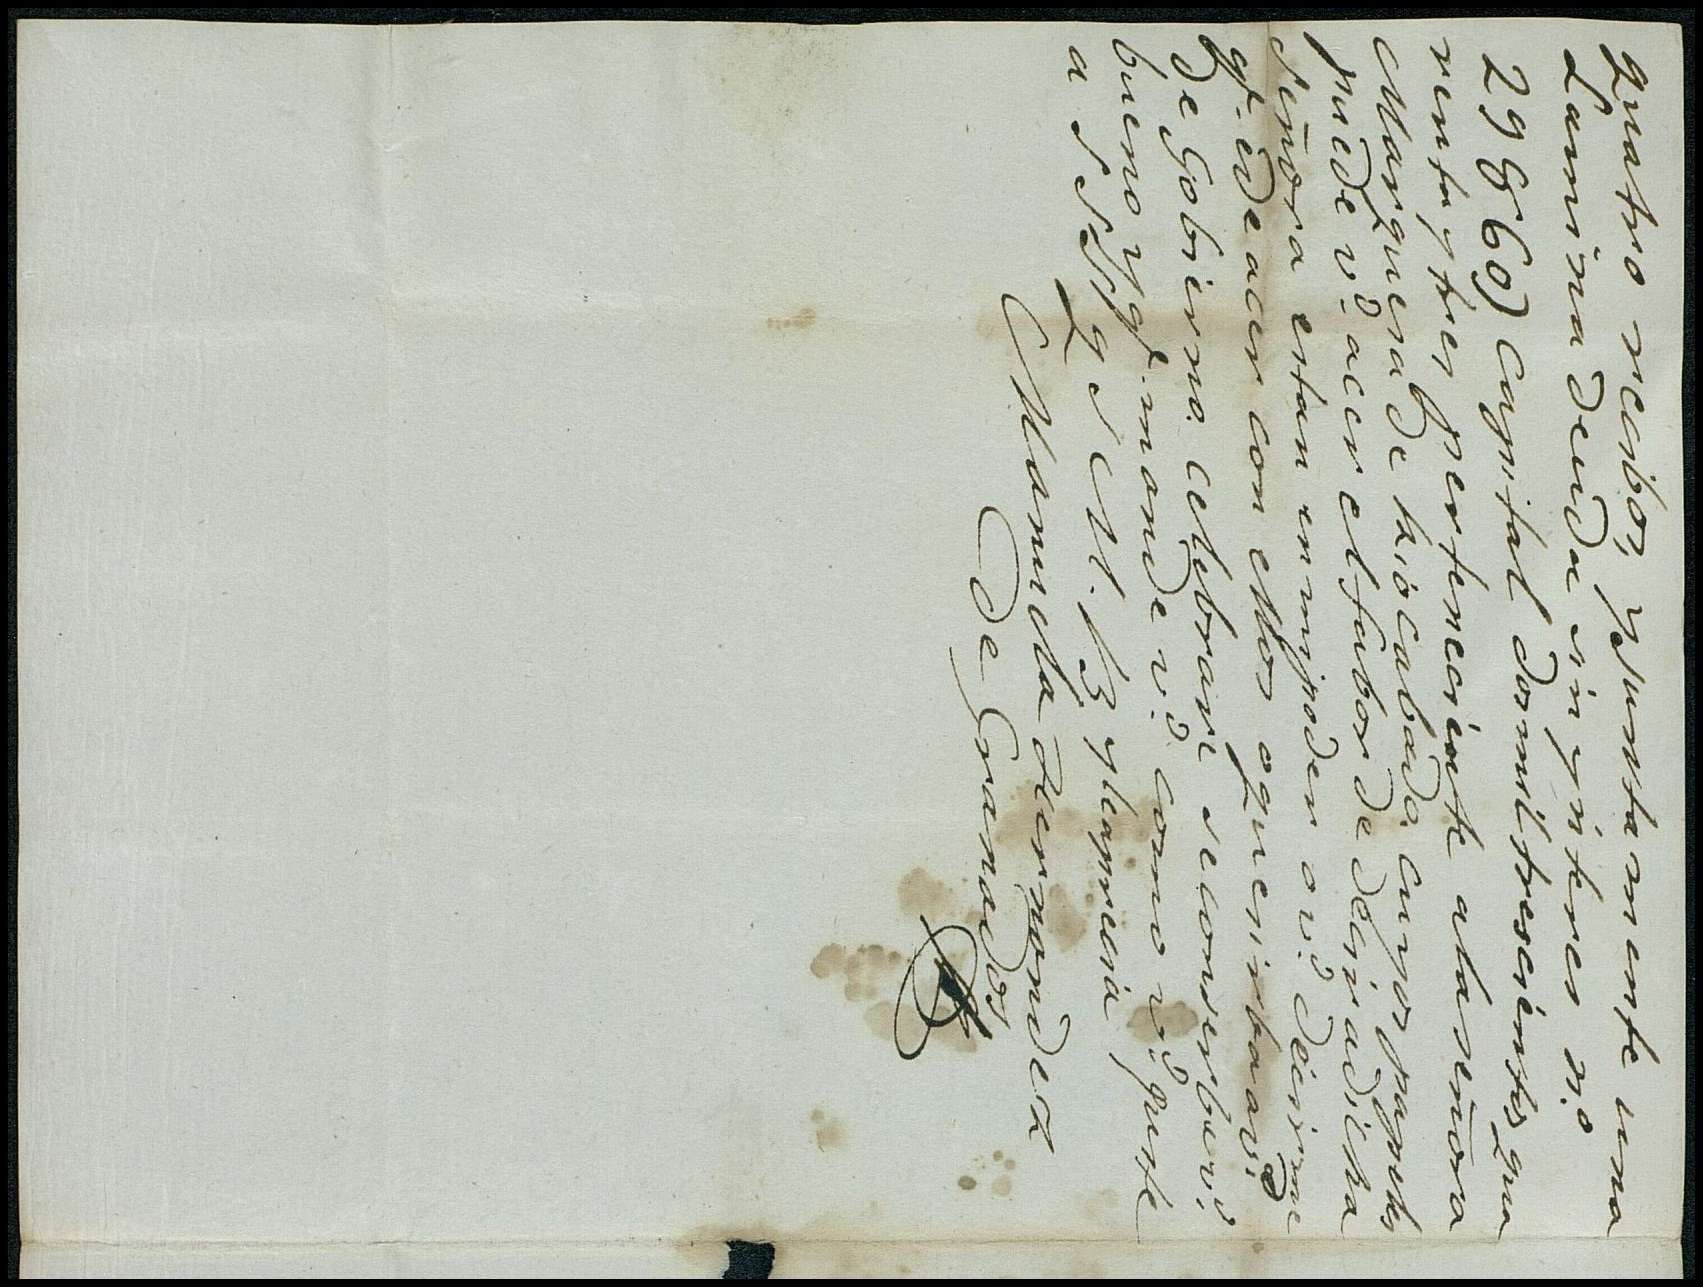 quatro recibos, y Juntamente una
Lamina deuda sin ynteres n.o
29860) Capital dosmil trescientos qua
renta y tres perteneciente ala señora
Marquesa de Riocabado. cuyos papeles
puede v.d acer el fabor de delir a dicha
señora estan en mi poder o v.d decirme
qe. e de acer con ellos o quien sirba a v.d
de Gobierno. celebrare se conserbe v.d
bueno y qe. mande v.d como v.d guste
a S S S q S M. B y le aprecia
Manuela Hernandez
de Granados